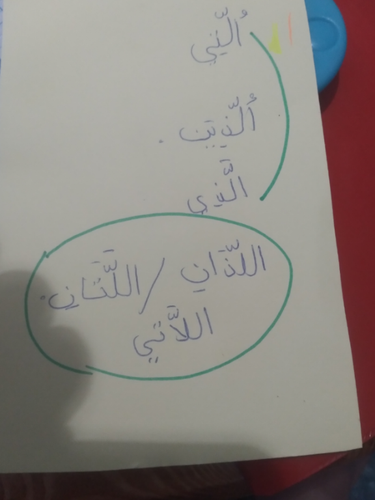 ألّتي
ألّذين.
الَّذي
اللّذَانِ / اللَّتَانِ.
اللاَّتي